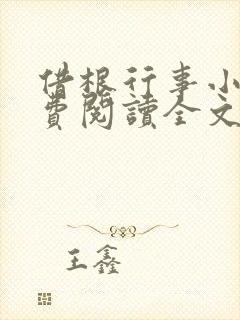 借根行事小
費閱讀全文
王鑫